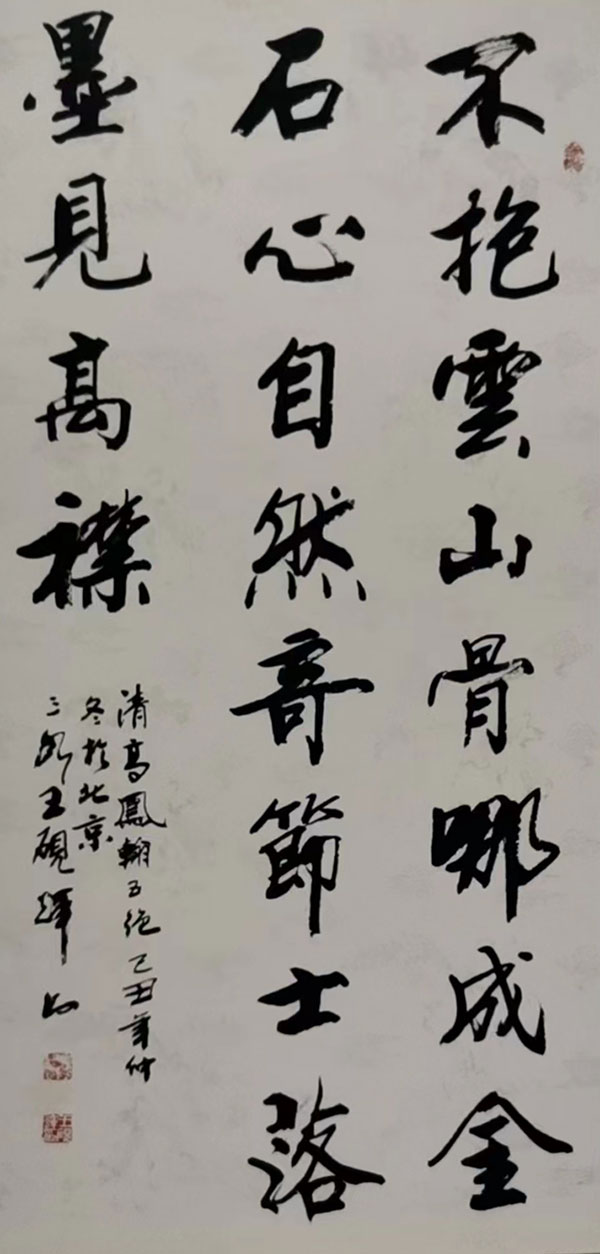 不抱雲山骨哪成金
石心自然奇節士落
墨見高襟
清高鳳翰五絕己丑年仲
冬於北京
王硯輝